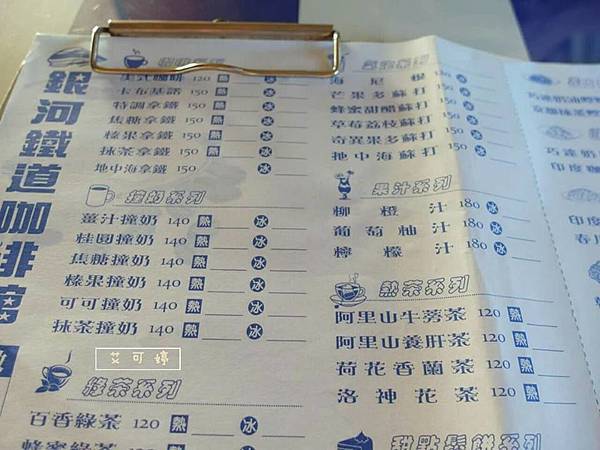 銀河鐵道咖啡館
美式咖啡 120 熱 冰
卡布基諾 150 熱 冰
特調拿鐵 150 熱 冰
焦糖拿鐵 150 熱 冰
榛果拿鐵 150 熱 冰
抹茶拿鐵 150 熱 冰
地中海拿鐵 150 冰
撞奶系列
薑汁撞奶 140 熱 冰
桂圓撞奶 140 熱 冰
焦糖撞奶 140 熱 冰
榛果撞奶 140 熱 冰
可可撞奶 140 熱 冰
抹茶撞奶 140 熱 冰
艾可婷
綠茶系列
百香綠茶 120 熱 冰
蜂蜜綠茶
海尼根 150 冰
芒果多蘇打 150 冰
蜂蜜甜醋蘇打 150 冰
草莓荔枝蘇打 150 冰
奇異果多蘇打 150 冰
地中海蘇打 150 冰
果汁系列
柳橙汁 180 冰
葡萄柚汁 180 冰
檸檬汁 180 冰
熱茶系列
阿里山牛蒡茶 120 熱
阿里山養肝茶 120 熱
荷花香蘭茶 120 熱
洛神花茶 120 熱
甜點鬆餅系列
印度
印度